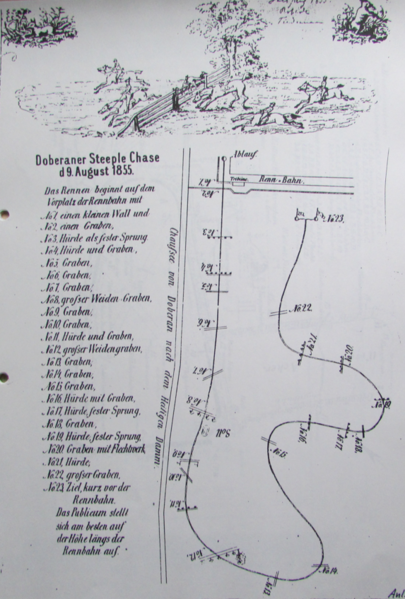 Doberaner Steeple Chase
d 9. August 1855.
Das Rennen beginnt auf dem
Vorplatz der Rennbahn mit
No 1, einen kleinen Wall und
No 2, einen Graben,
No 3, Hürde als fester Sprung
No 4, Hürde und Graben,
No 5, Graben,
No 6, Graben,
No 7, Graben,
No 8, großer Weiden-Graben,
No 9, Graben,
No 10, Graben,
No 11, Hürde und Graben,
No 12, großer Weidengraben,
No 13, Graben,
No 14, Graben,
No 15, Graben,
No 16, Hürde mit Graben,
No 17, Hürde, fester Sprung,
No 18, Graben,
No 19, Hürde, fester Sprung
No 20, Graben mit Flechtwerk
No 21, Hürde,
No 22, großer Graben,
No 23, Ziel, kurz vor der
Rennbahn.
Das Publicum stellt
sich am besten auf
der Höhe längs der
Rennbahn auf.
Chaussee von Doberan nach dem Heiligen Damm.
Ablauf.
Tribüne
Renn-Bahn.
No 1
No 2
No 3
No 4
No 5
No 6
No 7
No 8
Soll
No 9
No 10
No 11
No 12
No 13
No 14
No 15
No 16
No 17
No 18
No 19
No 20
No 21
No 22
No 23.